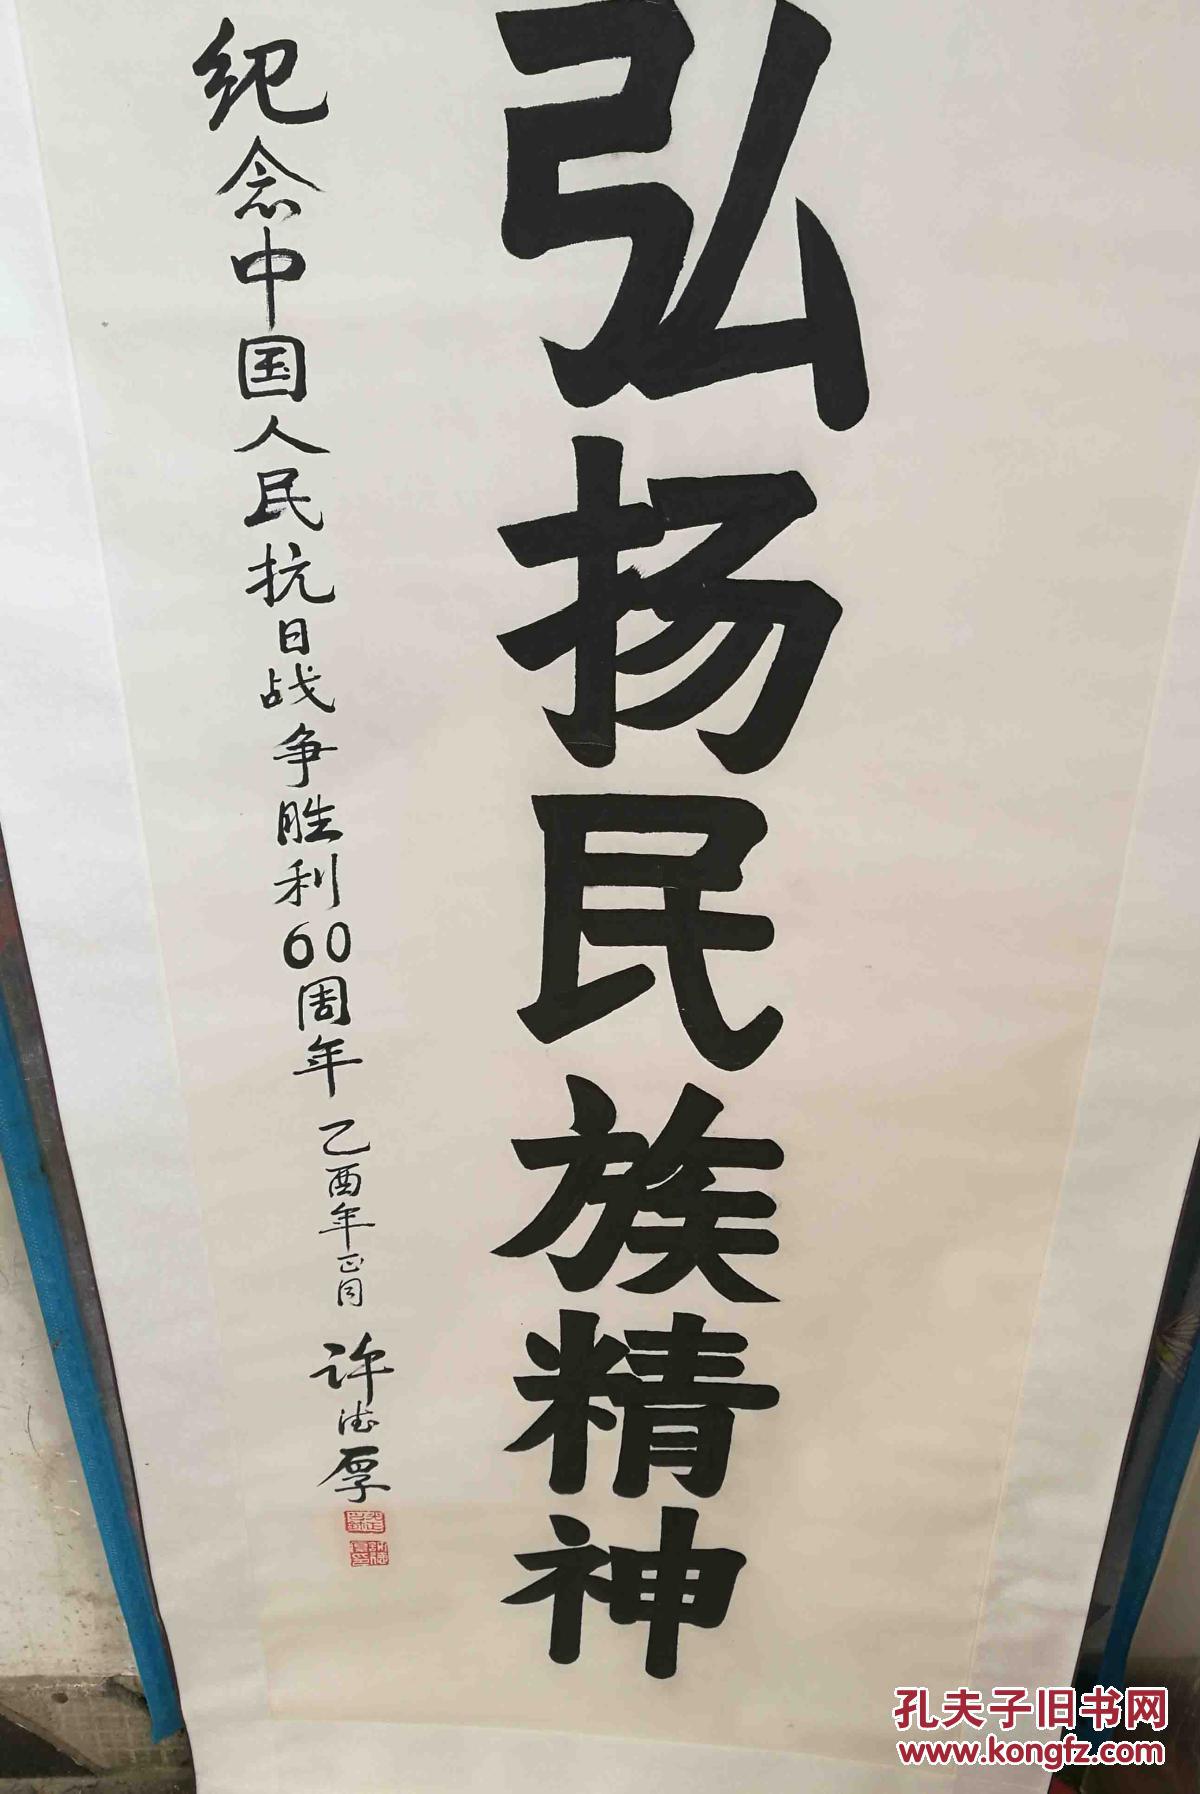 弘扬民族精神
纪念中国人民抗日战争胜利60周年 乙酉年正月 许德厚
孔夫子旧书网
www.kongfz.com